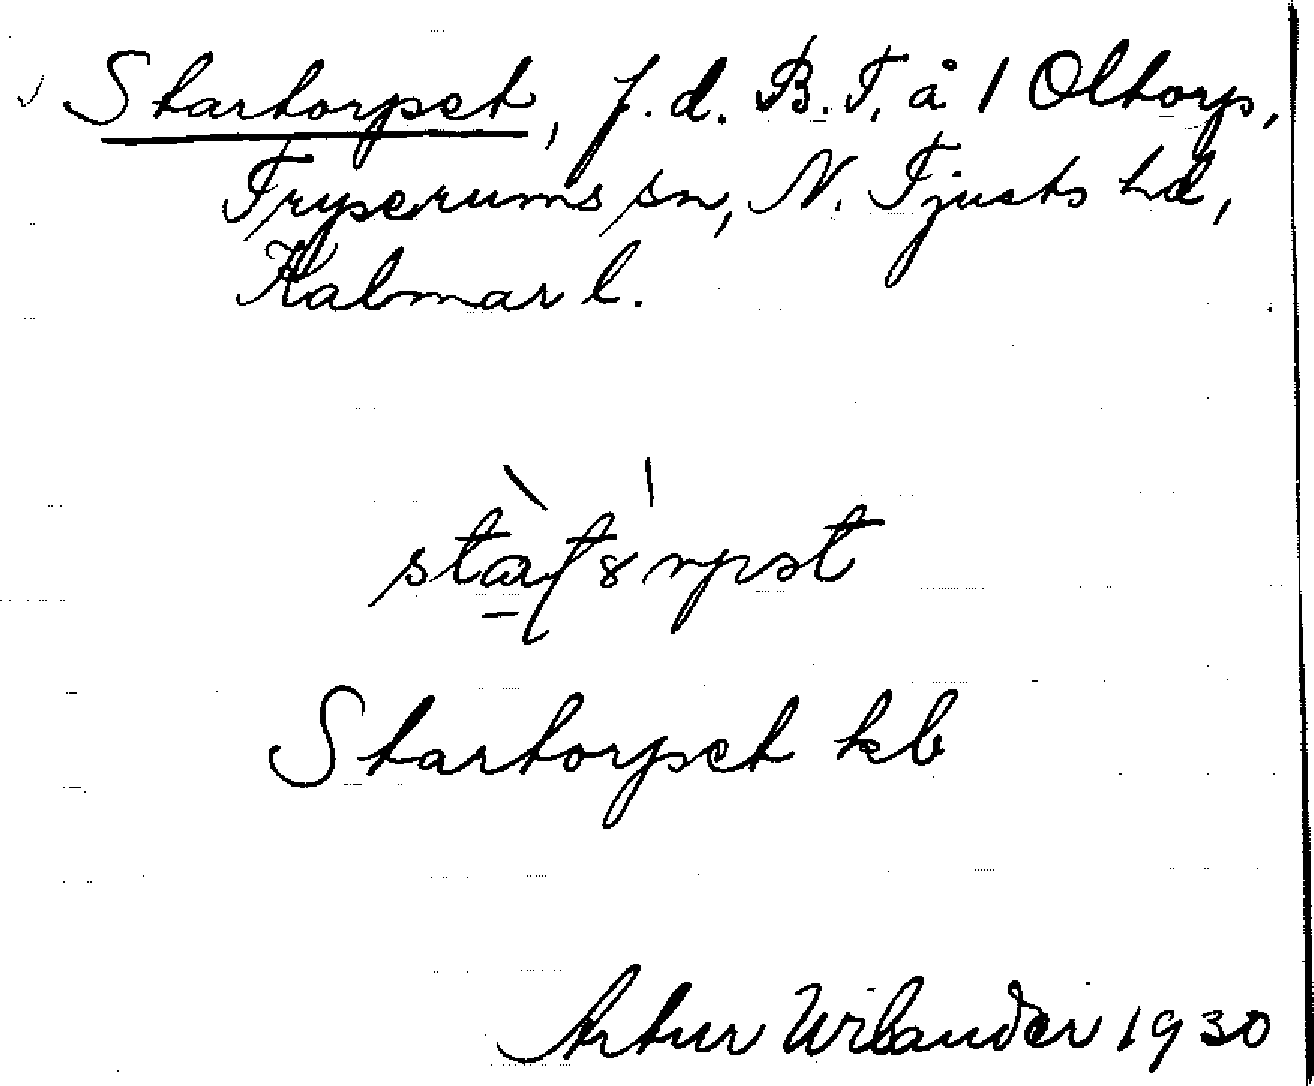 Startorpet, f. d. B. T. å 1 Oltorp,
Tryserums sn, N. Tjusts hd,
Kalmar l.
Startorpet kb
Artur Wilander 1930